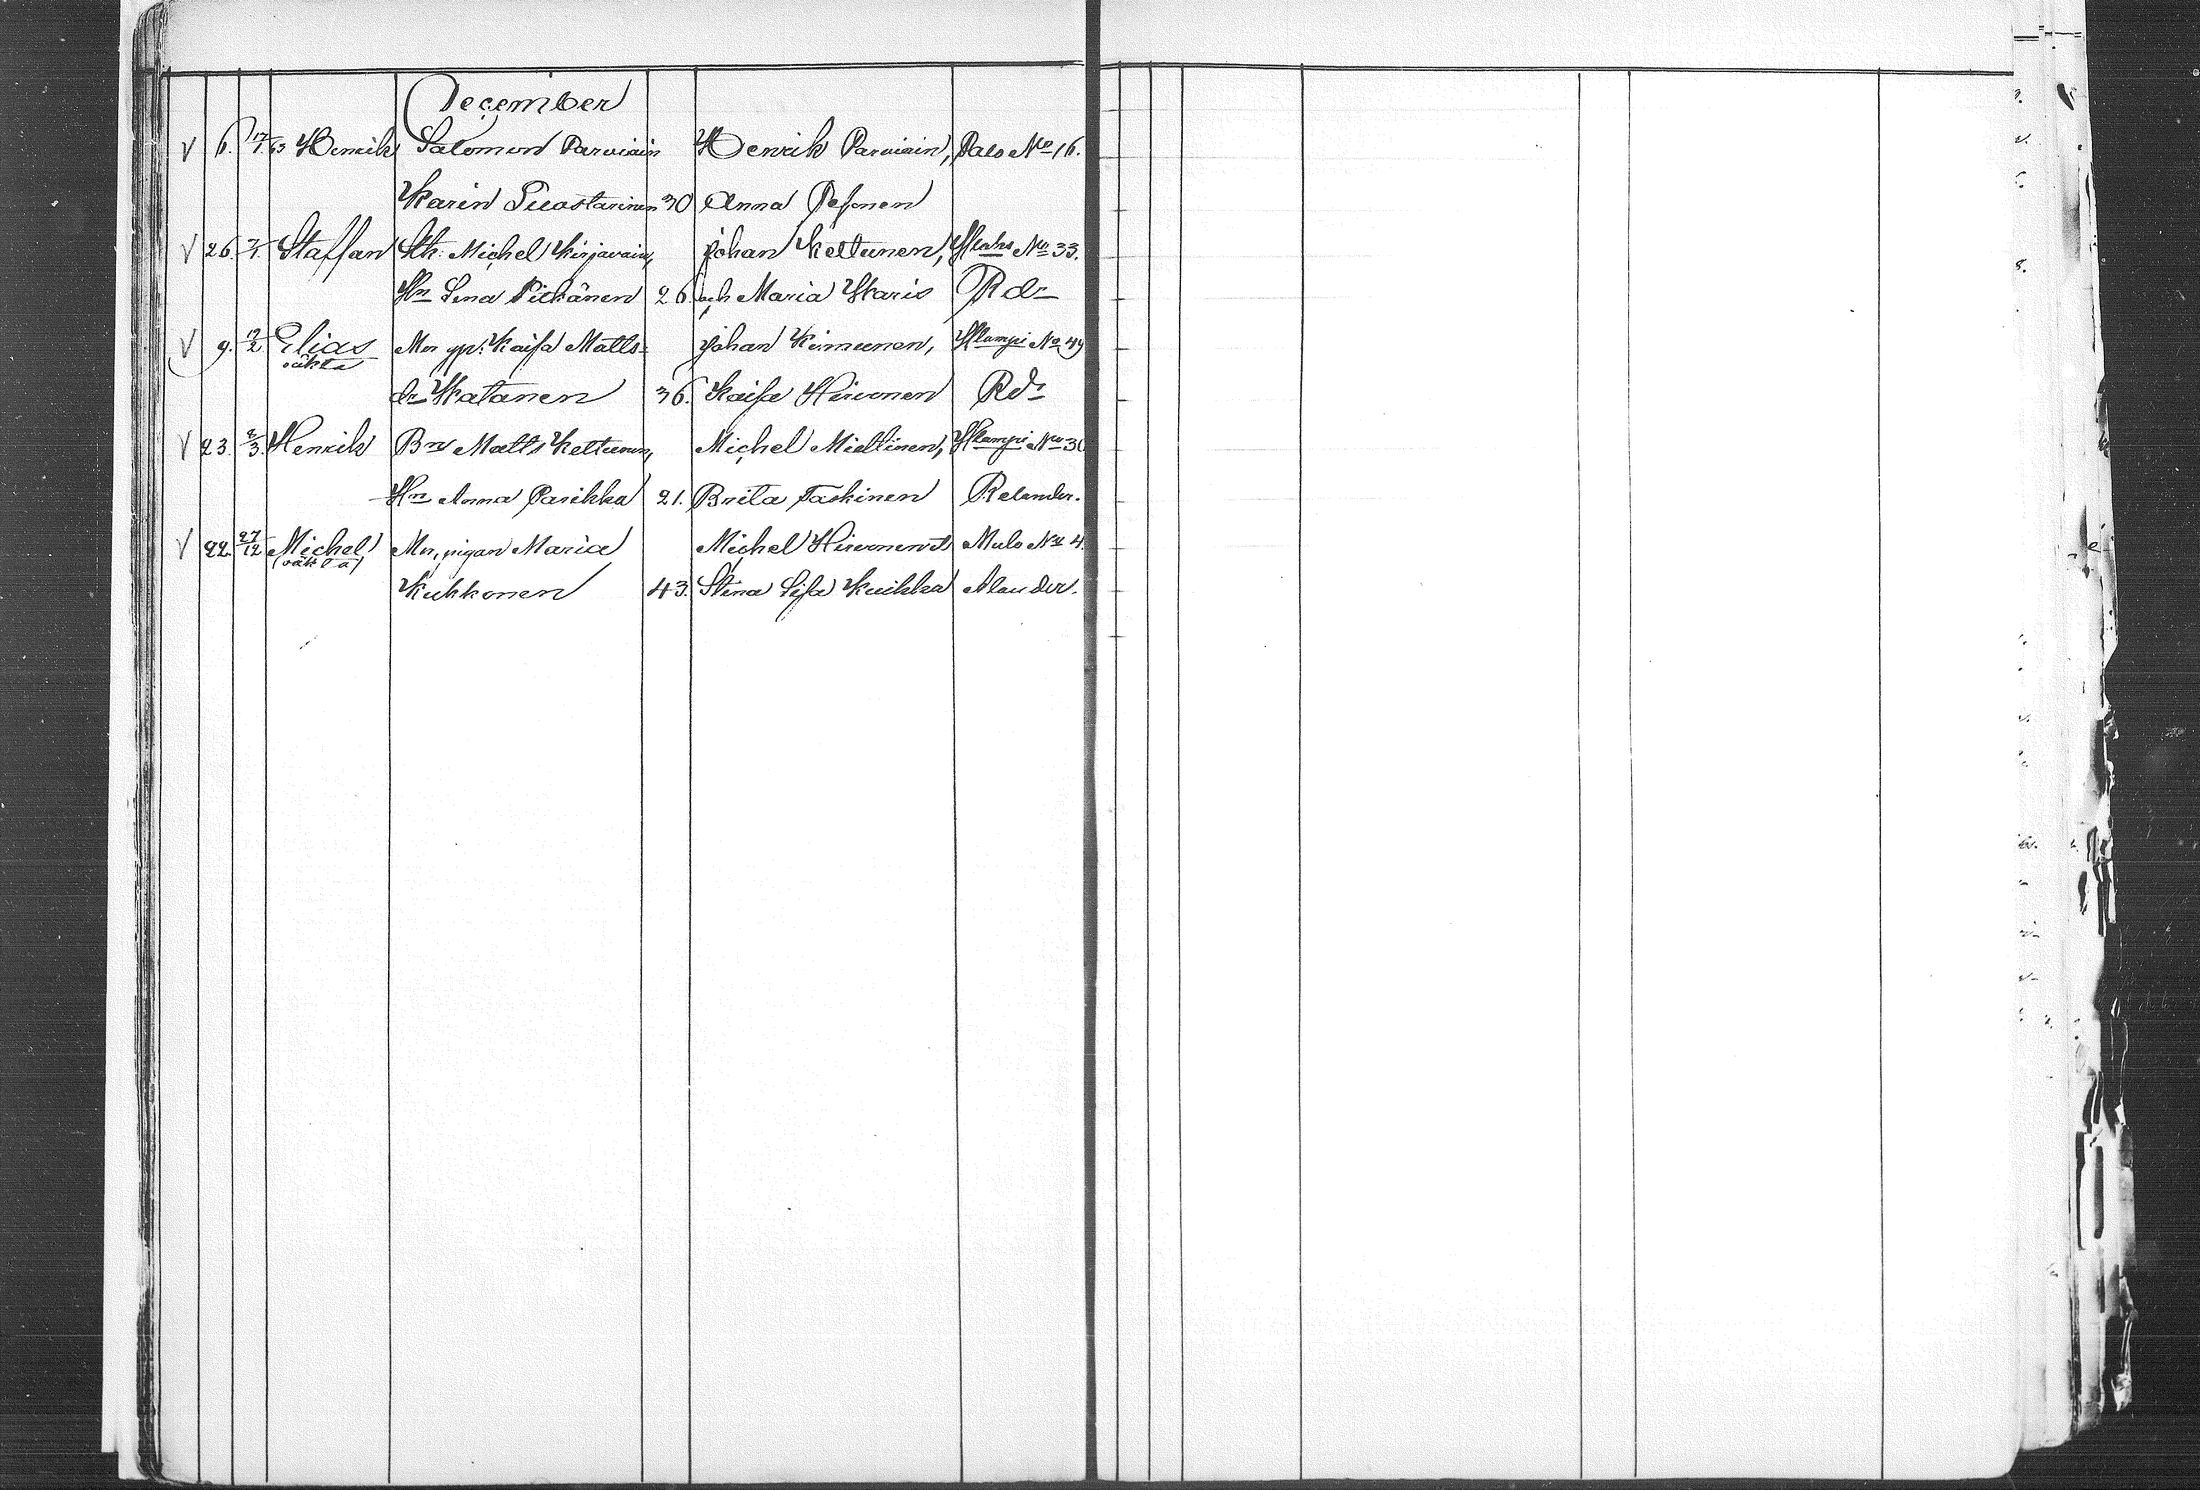 December
V 6. 17/1 63 Henrik Salomon Parviain Henrik Parviain, Palo No 16.
Karin Puustarinen 30 Anna Pesonen
V 26. 7/1 Staffan Michel Kirjavain, Johan Kettunen, No 33.
Hn Lena Pitkänen 26. och Maria Karis Rdr
V 9. 12/2 Elias Mn gp. Kaisa Matts= Johan Kinnunen, Hlampi No 49
oäkta
dr Hatanen 36. Kaisa Hirvonen Rdr
V 23. 2/3 Henrik Bn Matts Kettunen, Michel Miettinen, Hlampi No 30
Hn Anna Parikka 21. Brita Taskinen Relander.
V 22. 27/12 Michel Mn, pigan Maria Michel Hirvonen & Mulo No 4.
(oäkta)
Kukkonen 43. Stina Lisa Kuikka Alander.